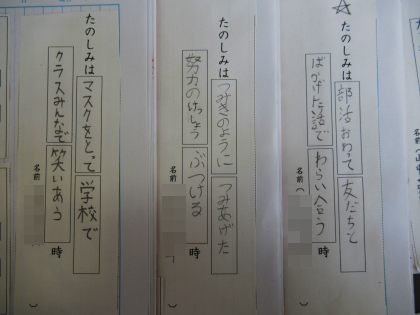 たのしみは 部活おわって 友だちと
ばかげた話で わらい合う 時
名前(
たのしみは つみきのように つみあげた
努力のけっしょう ぶつける 時
名前
たのしみは マスクをとって 学校で
クラスみんなで 笑いあう 時
名前